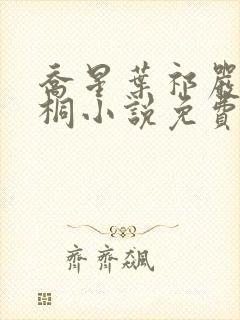 喬星葉祁嚴
桐小說免費
齊齊飆